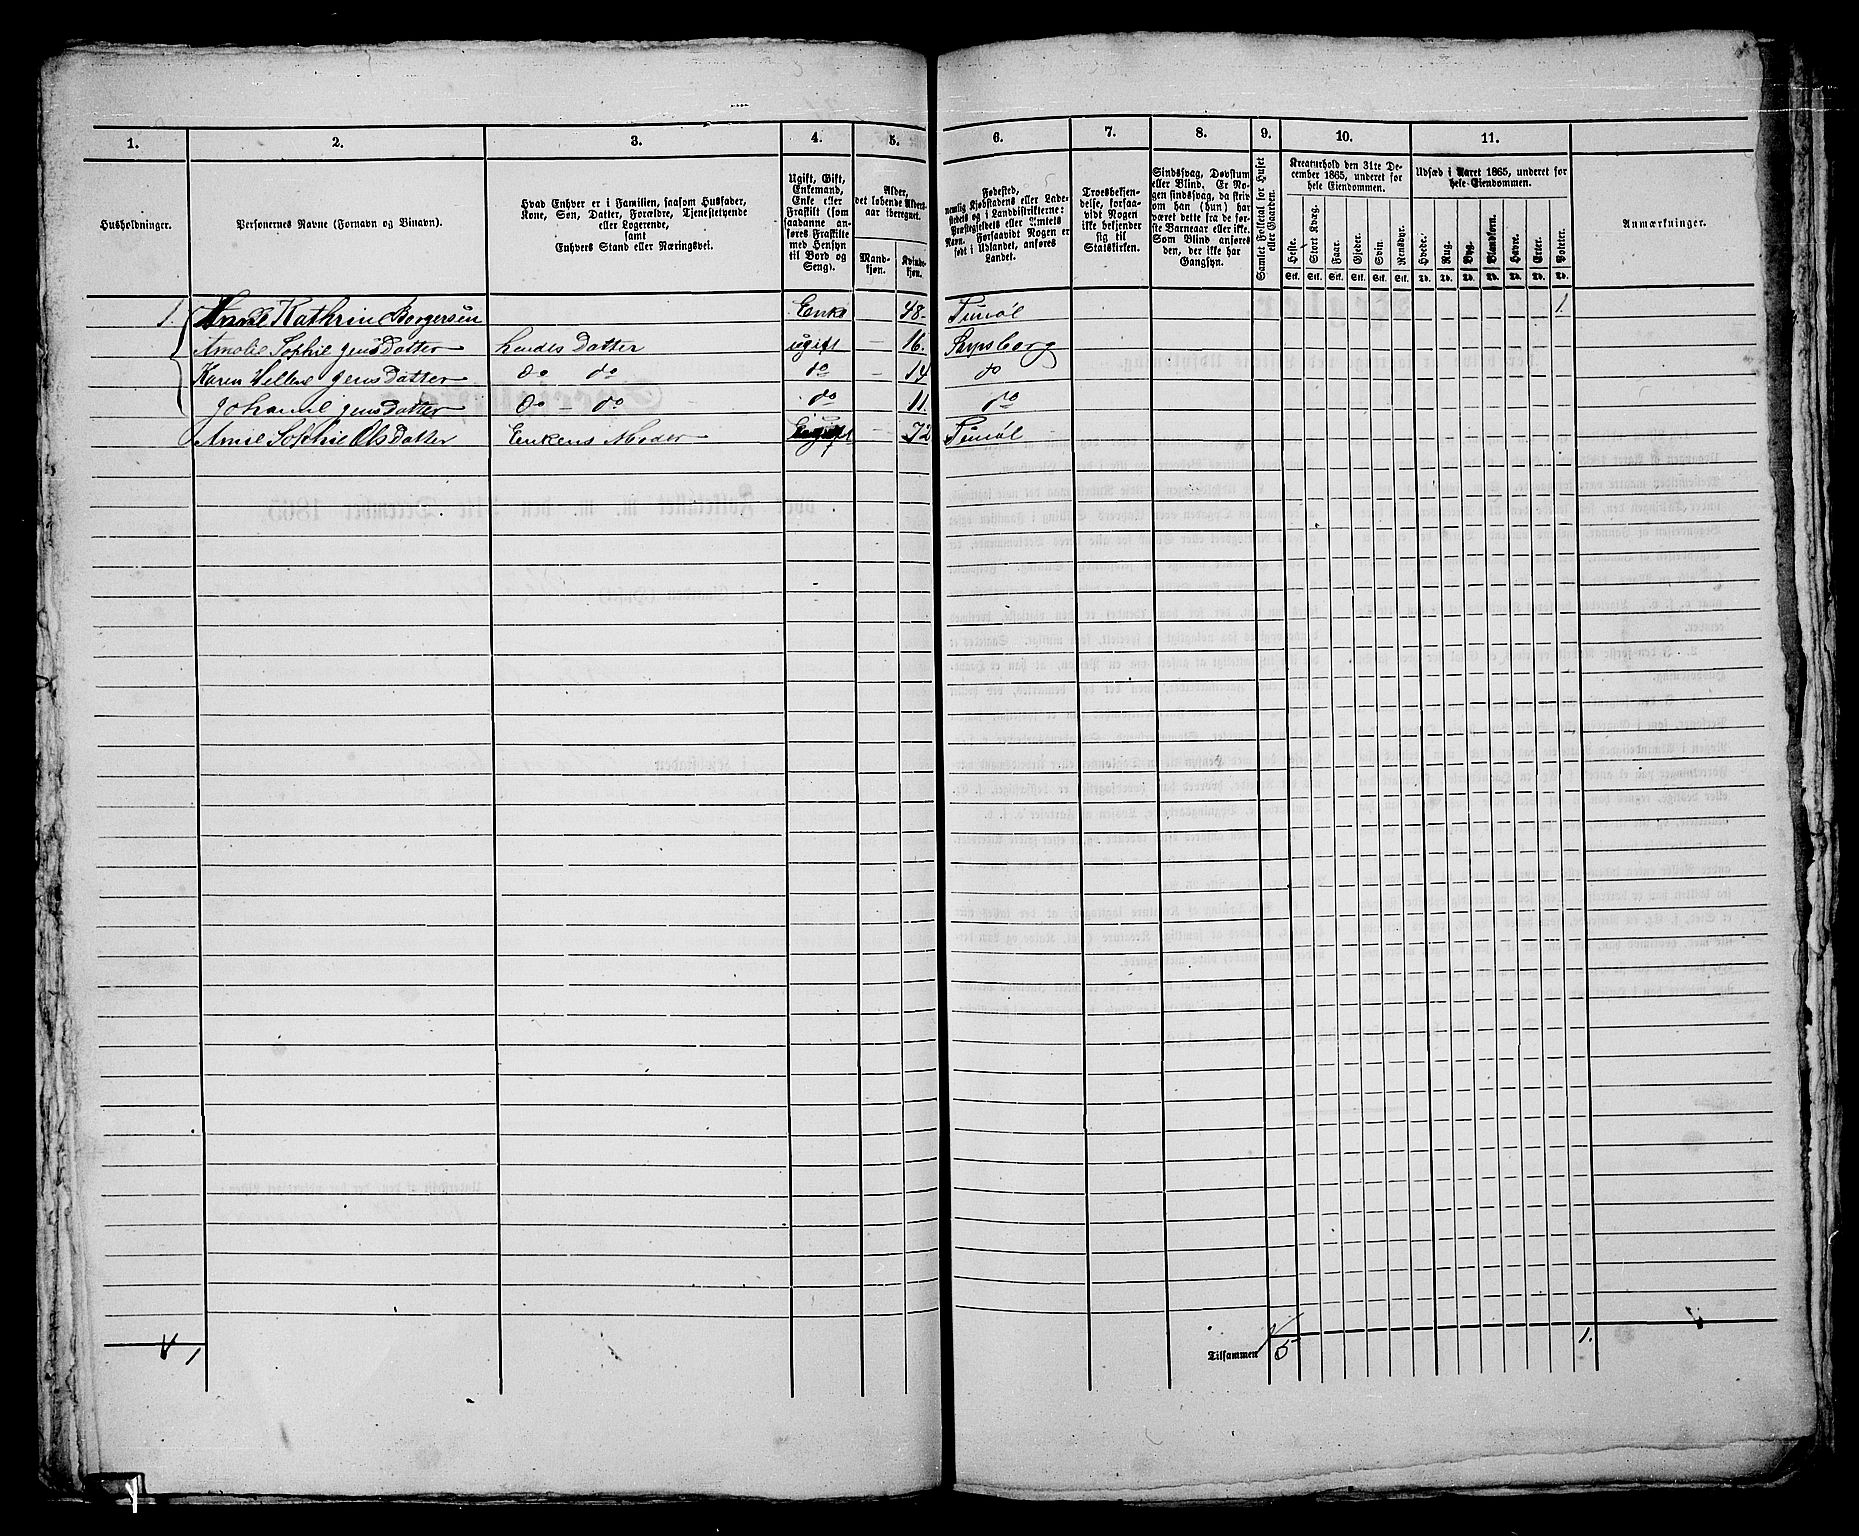 1.
2.
3.
4.
5.
6.
7.
8.
9.
10.
11.
Husholdninger.
Personernes Navne (Fornavn og Binavn).
Hvad Enhver er i Familien, saasom Husfader,
Kone, Søn, Datter, Forældre, Tjenestetyende
eller Logerende,
samt
Enhvers Stand eller Næringsvei.
Ugift, Gift,
Enkemand,
Enke eller
Fraskilt (som
saadanne an-
føres Fraskilte
med Hensyn
til Bord og
Seng).
Alder,
det løbende Alders-
aar iberegnet.
Mand-
kjøn.
Kvinde-
kjøn.
Fødested,
nemlig Kjøbstadens eller Lade-
stedets og i Landdistrikterne:
Præstegjeldets eller Amtets
Navn. Forsaavidt Nogen er
født i Udlandet, anføres
Landet.
Troesbekjen-
delse, forsaa-
vidt Nogen
ikke bekjender
sig til
Statskirken.
Sindssvag, Døvstum
eller Blind. Er No-
gen sindssvag, da skriv
om han (hun) har
været dette fra de før-
ste Barneaar eller ikke.
Som Blind anføres
den, der ikke har
Gangsyn.
Samlet Folketal for Huset
eller Gaarden.
Kreaturhold den 31te De-
cember 1865, underet for
hele Eiendommen.
Heste. Stort Kvæg. Faar. Gjeder. Svin. Rensdyr.
Stk. Stk. Stk. Stk. Stk. Stk.
Udsæd i Aaret 1865, underet for
hele Eiendommen.
Hvede. Rug. Byg. Blandkorn. Havre. Erter. Poteter.
Td. Td. Td. Td. Td. Td. Td.
Anmærkninger.
1. Anne Kathrine Borgersen Enke 48. Tunøl 1.
Amalie Sophie Jens Datter hendes Datter ugift – 16. Sarpsborg
Karen Hellene Jens Datter do do do – 14 do
Johanne Jens Datter do – do do – 11. do
Anne Sophie Ols Datter Enkens Moder – 72 Tunøl
1
Tilsammen 5 1.